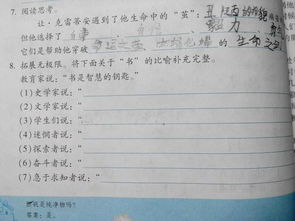 7. 阅读思考。
让·克雷蒂安遇到了他生命中的“茧”:
但他选择了
它们是帮助他穿破 的生命之
8. 拓展无极限。将下面关于“书”的比喻补充完整。
教育家说:“书是智慧的钥匙。”
(1)史学家说:“
(2)文学家说:“
(3)学生们说:“
(4)迷惘者说:“
(5)探索者说:“
(6)奋斗者说:“
(7)急于求知者说:“
我是纯净物吗?
答案:是。